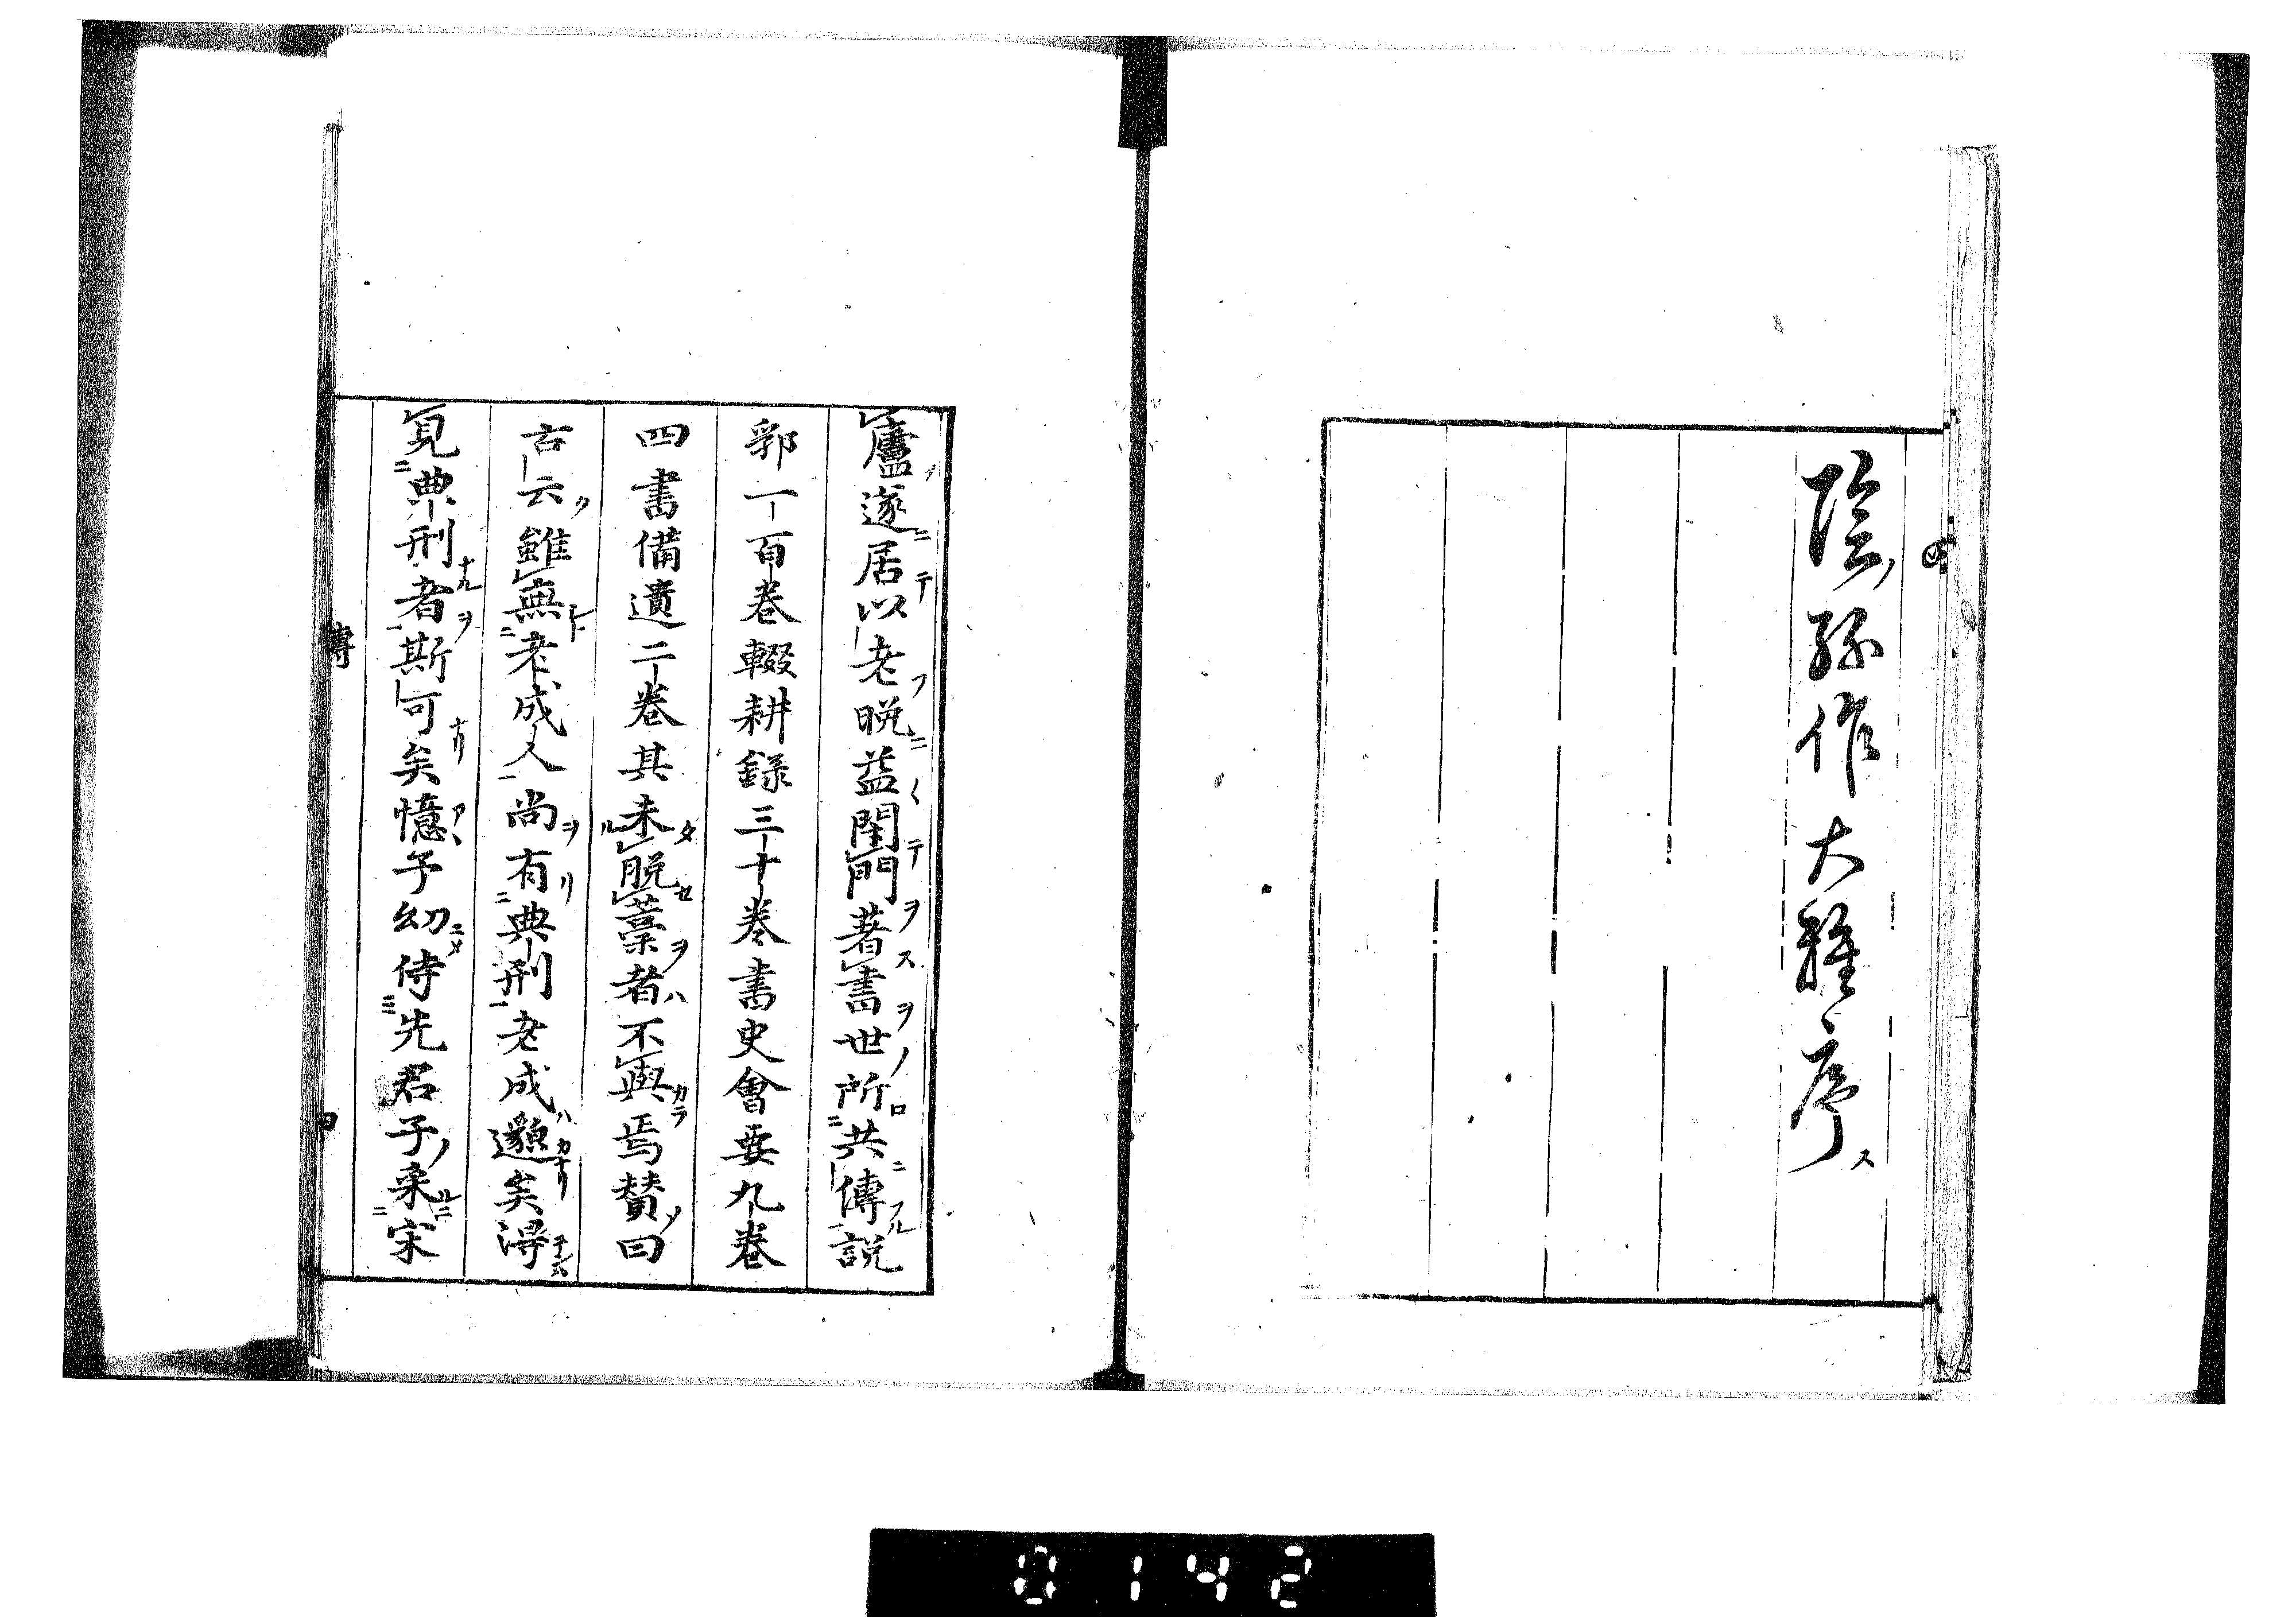 陰孫作大雅序ス
廬遂居以老晚益閉門著書世所共傳説
郛一百卷輟耕錄三十卷書史會要九卷
四書備遺二卷其未脱藁者不與焉賛曰
古云雖無老成人尚有典刑老成邈矣得
見典刑者斯可矣憶予幼侍先君子来宋
傳
四
0142